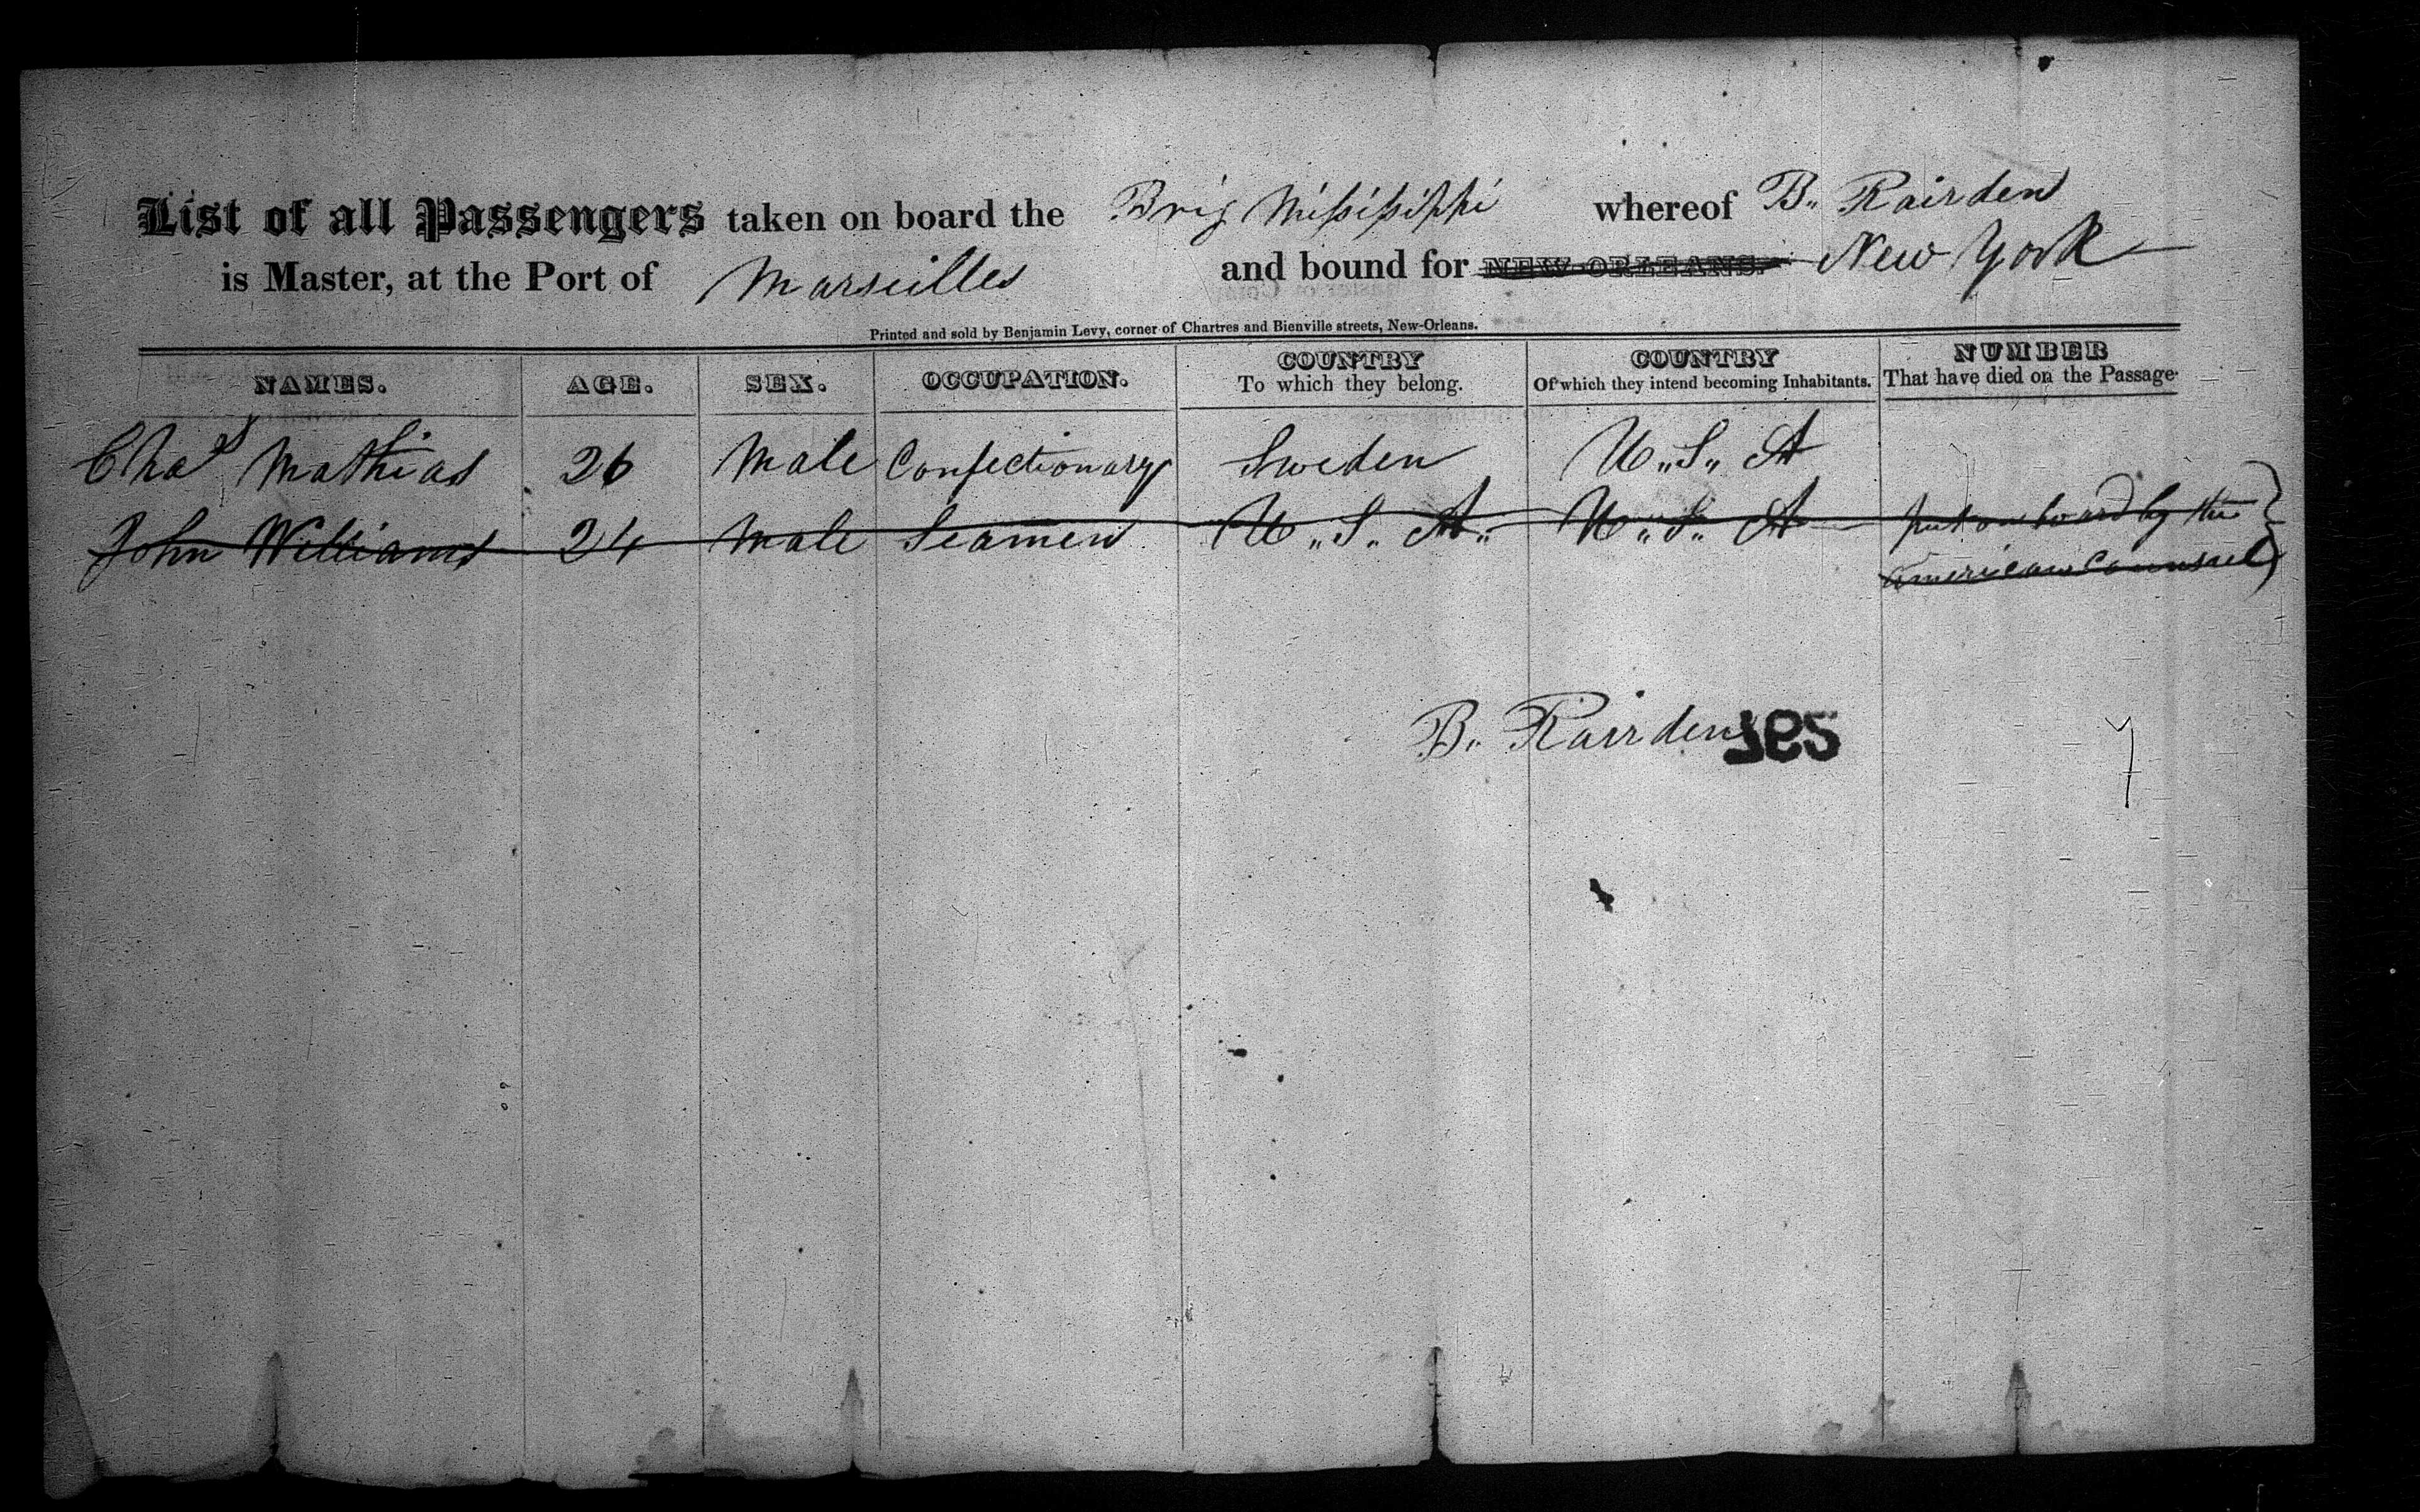 List of all Passengers taken on board the Brig Mississippi whereof B. Rairden
is Master, at the Port of Marseilles and bound for NEW-ORLEANS. New York
Printed and sold by Benjamin Levy, corner of Chartres and Bienville streets, New-Orleans.
NAMES. AGE. SEX. OCCUPATION. COUNTRY To which they belong. COUNTRY Of which they intend becoming Inhabitants. NUMBER That have died on the Passage.
Chas Mathias 26 Male Confectionary Sweden U.S. A
John Williams 24 Male Seamen U.S. A. U.S. A put on board by the
American Counsul
B. Rairden 195
7